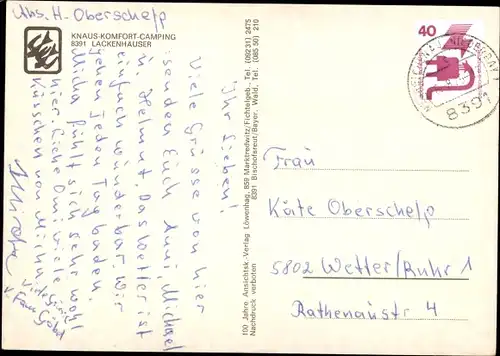 Abs. H. Oberschelp
KNAUS-KOMFORT-CAMPING
8391 LACKENHÄUSER
Ihr Lieben!
Viele Grüsse von hier
senden Euch Anni, Michael
u. Helmut. Das Wetter ist
einfach wunderbar. Wir
gehen jeden Tag baden.
Micha fühlt sich sehr wohl
hier. Liebe Omi viele
Küsschen von Micha
Micha
100 Jahre Ansichtsk.-Verlag Löwenhag, 859 Marktredwitz/Fichtelgeb. Tel. (09231) 2475
8391 Bischofsreut/Bayer. Wald, Tel. (085 50) 210
Nachdruck verboten
40
8391
Frau
Käte Oberschelp
5802 Wetter/Ruhr 1
Rathenaustr 4